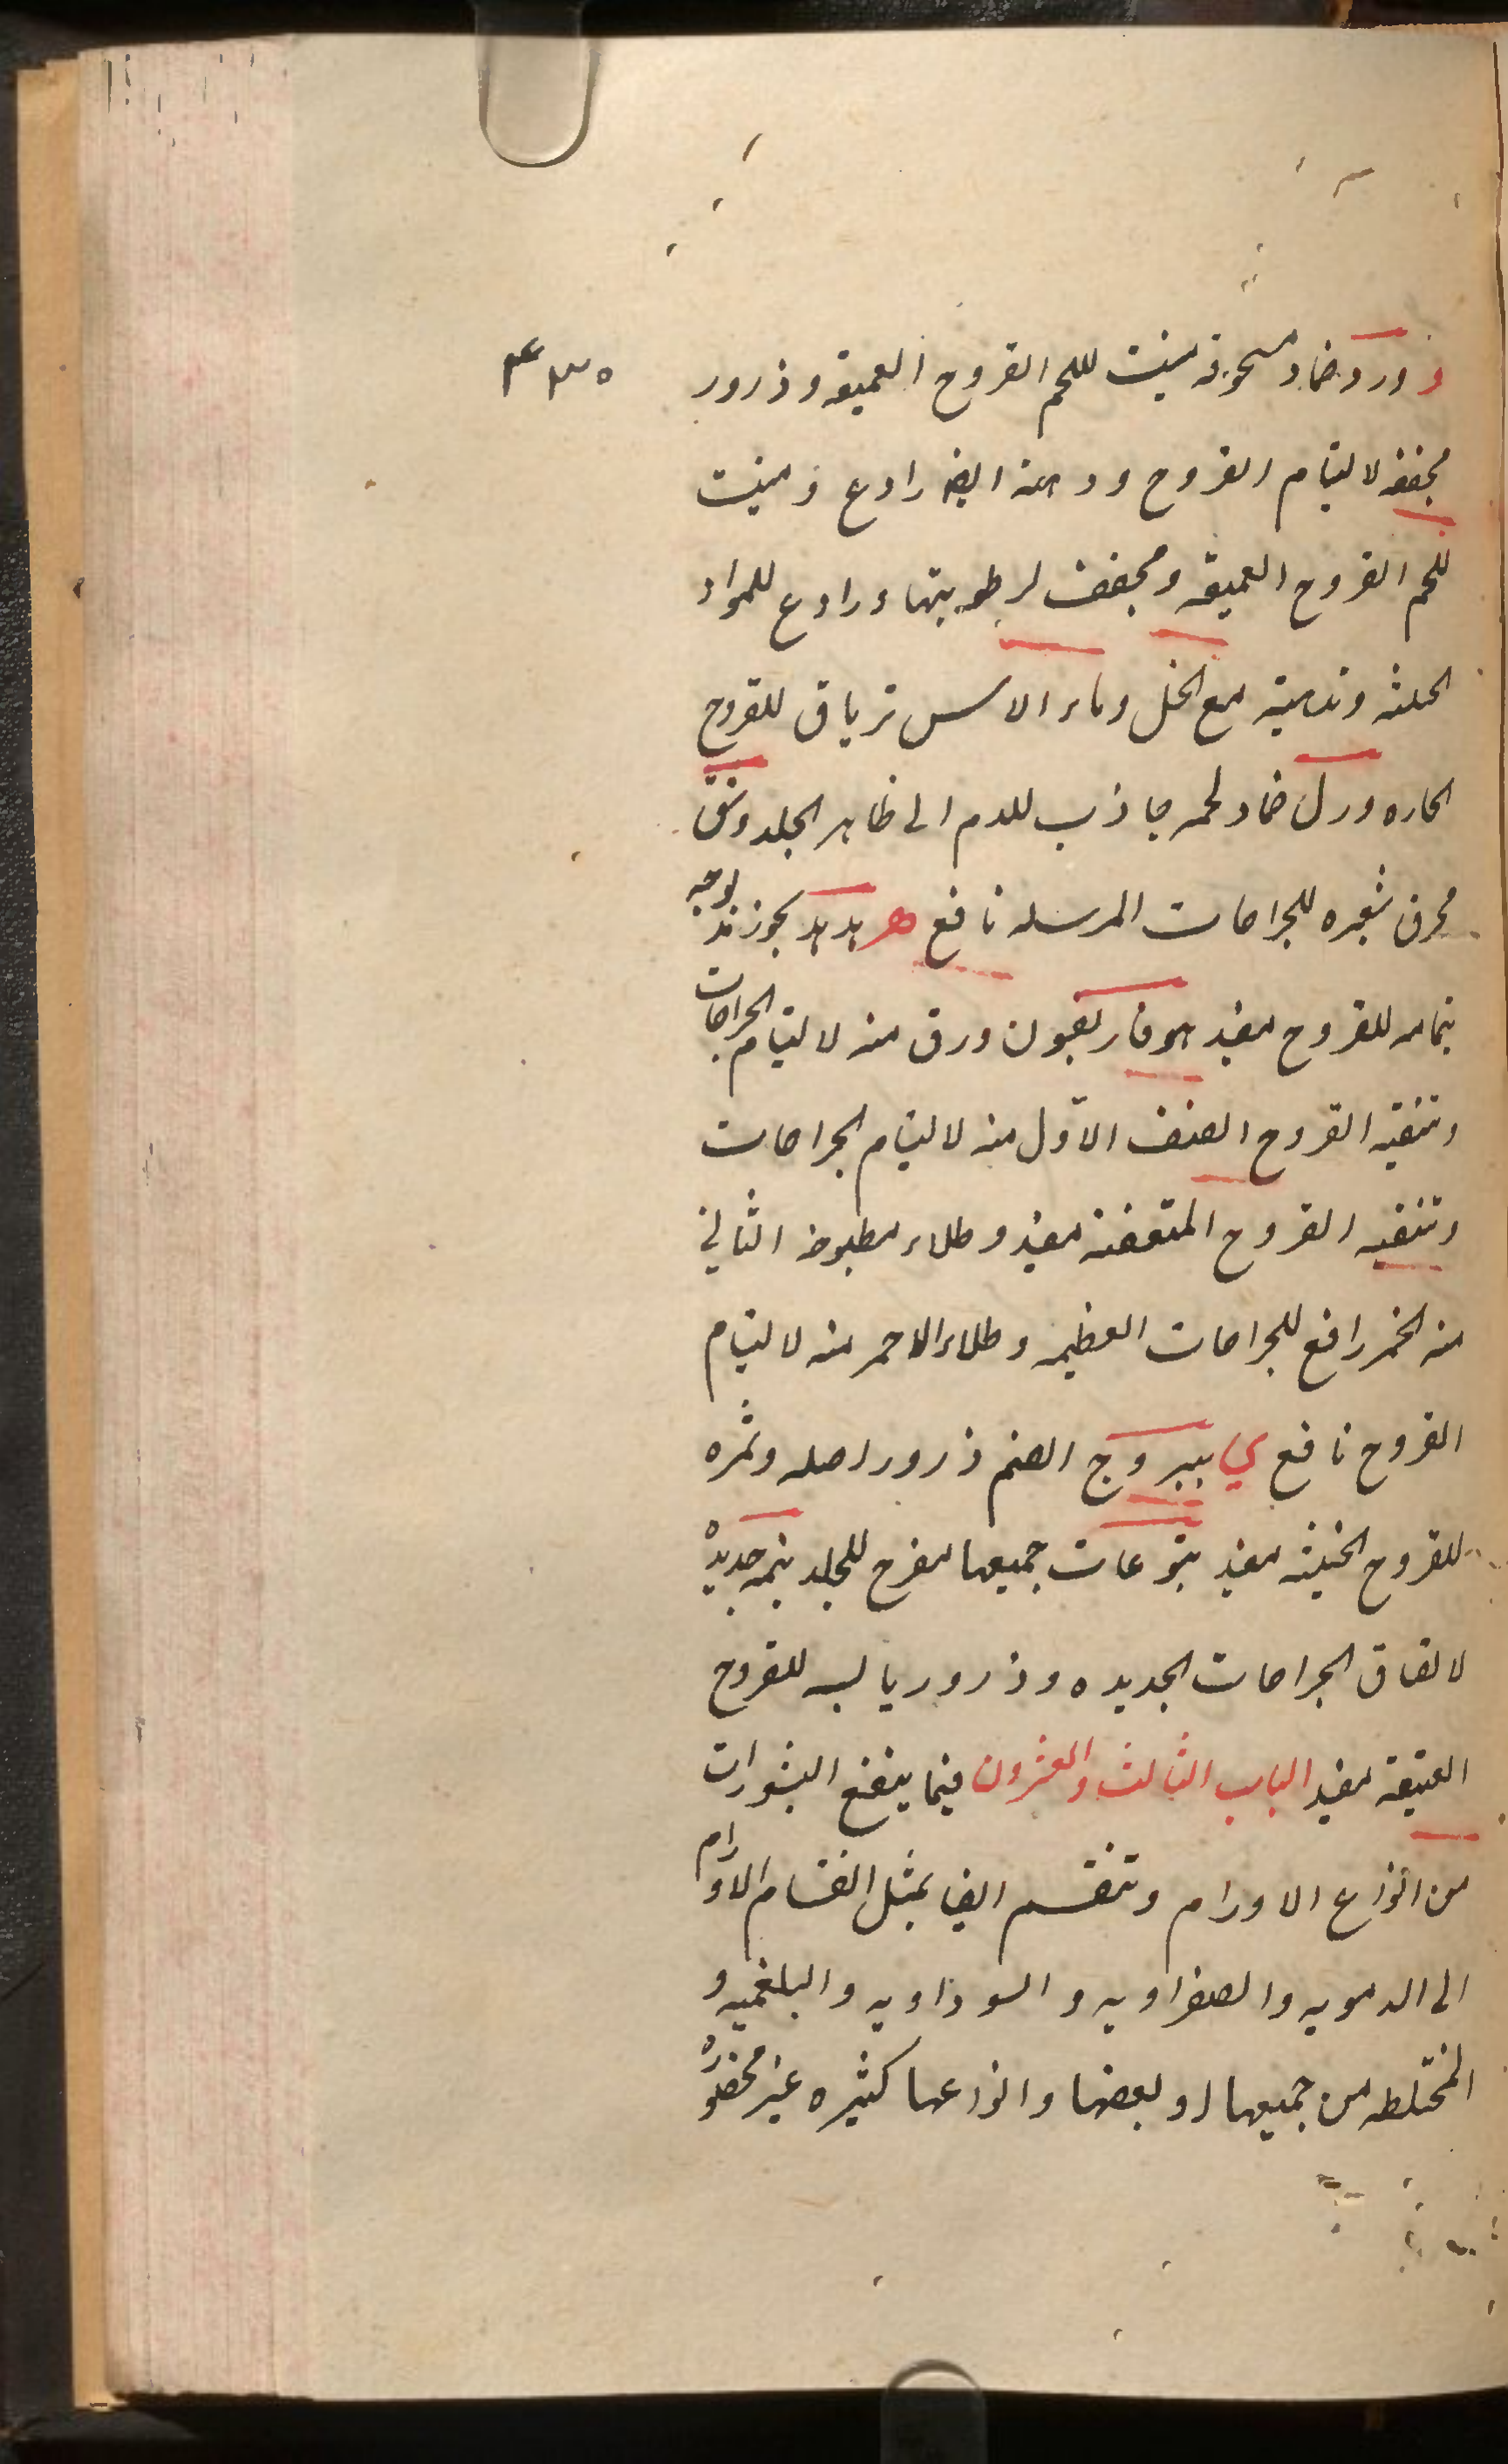 و ورد ضماد مسحوقه منبت للحم القروح العميقه وذرور ۴۳۵
مجففه لالتيام القروح ودهنه ايضا رادع ومنبت
للحم القروح العميقه ومجفف لرطوبتها ورادع للمواد
الخبيثه وتدهينه مع الخل وماء الاس ترياق للقروح
الحاره ورل ضماد لحمه جاذب للدم الى ظاهر الجلد وشق
محرق شعره للجراحات المرسله نافع ه هدهد بخور
للقروح مفيد هوفاريقون ورق منه لالتيام الجراحات
وتنقيه القروح الصنف الاول منه لالتيام الجراحات
وتنقيه القروح المتعفنه مفيد وطلاء مطبوخ الثاني
منه الخمر رافع للجراحات العظيمه وطلاء الاحمر منه لالتيام
القروح نافع ي يبروج الصنم ذرور اصله وثمره
للقروح الخبيثه مفيد يتوعات جميعها مقرح للجلد ينمه جديده
لالصاق الجراحات الجديده وذرور يابسه للقروح
العتيقه مفيد الباب الثالث والعشرون فيما ينفع البثورات
من انواع الاورام وتنقسم ايضا بمثل انقسام الاورام
الى الدمويه والصفراويه والسوداويه والبلغميه و
المختلطه من جميعها او بعضها وانواعها كثيره غير محصوره